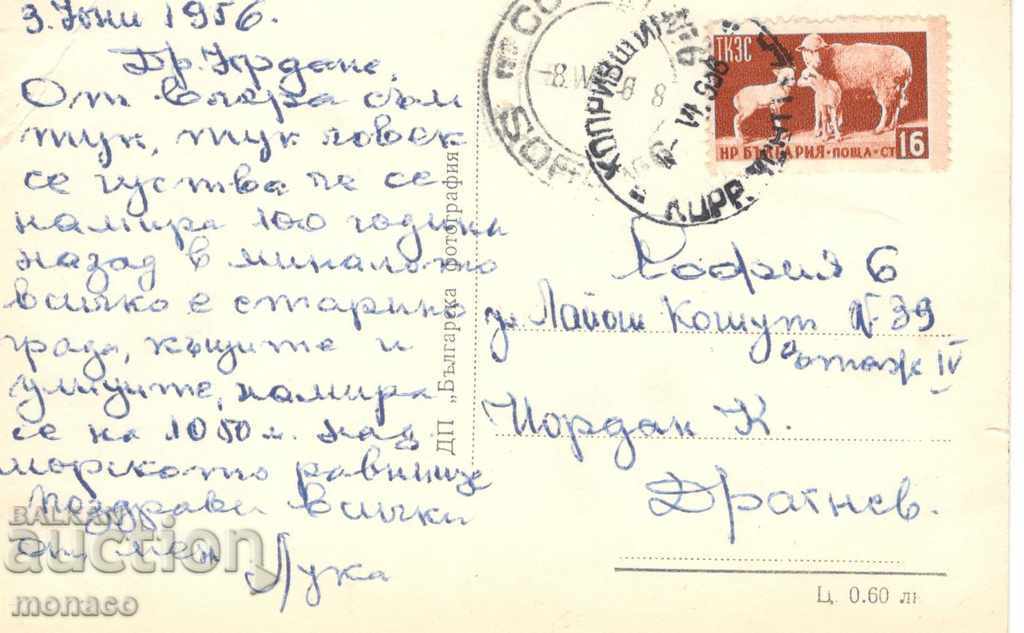 3. Юни 1956.
Др. Йордане,
От вчера съм
тук, тук човек
се чуства че се
намира 100 години
назад в миналото
всичко е старино
града, къщите и
улиците, намира
се на 1050 м. над
морското равнище
Поздрави всички
от мен
Лука
ДП „Българска фотография“
SOF
КОПРИВЩИЦА
ТКЗС
НР БЪЛГАРИЯ • ПОЩА • СТ 16
София 6
ул Лайош Кошут N 39
етаж IV
Йордан К.
Драгнев.
Ц. 0.60 лв
BALKAN
auction
monaco